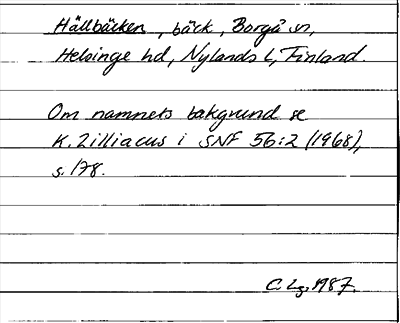 Hällbäcken, bäck, Borgå sn,
Helsinge hd, Nylands l, Finland.
Om namnets bakgrund se
K. Zilliacus i SNF 56:2 (1968),
s. 178.
C. Lg. 1987.